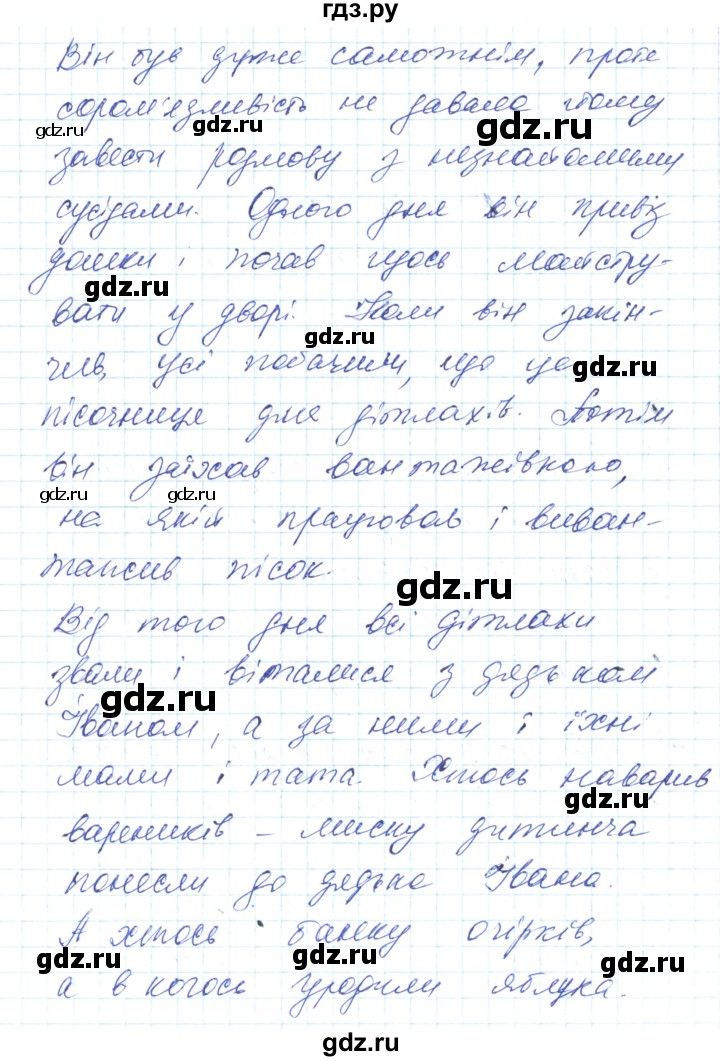 гдз.ру
Він був дуже самотнім, проте
сором'язливість не давала йому
gdz.ru gdz.ru gdz.ru
завести розмову з незнайомими
gdz.ru gdz.ru
сусідами. Одного дня він привіз
дошки і почав щось майстру-
gdz.ru gdz.ru
вати у дворі. Коли він закін-
gdz.ru
чив, усі побачили, що це
gdz.ru
пісочниця для дітлахів. Потім
він заїхав вантажівкою,
gdz.ru gdz.ru gdz.ru
на якій працював і виван-
тажив пісок.
gdz.ru
Від того дня всі дітлахи
звали і віталися з дядьком
gdz.ru
Іваном, а за ними і їхні
gdz.ru
мами і тата. Хтось наварив
gdz.ru
вареників – миску дитинча
gdz.ru
понесли до дядька Івана.
А хтось банку огірків,
gdz.ru gdz.ru gdz.ru
а в когось уродили яблука.